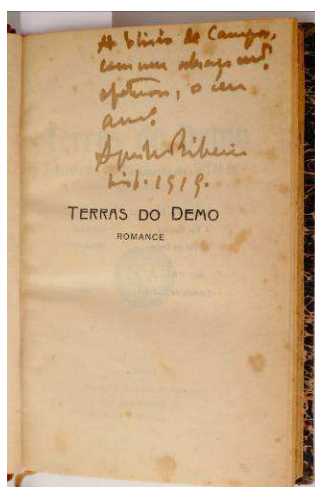 A Ulisses de Campos,
com um abraço mt.º
afetuoso, o seu
am.º
Aquilino Ribeiro
Lisb. 1919.
TERRAS DO DEMO
ROMANCE